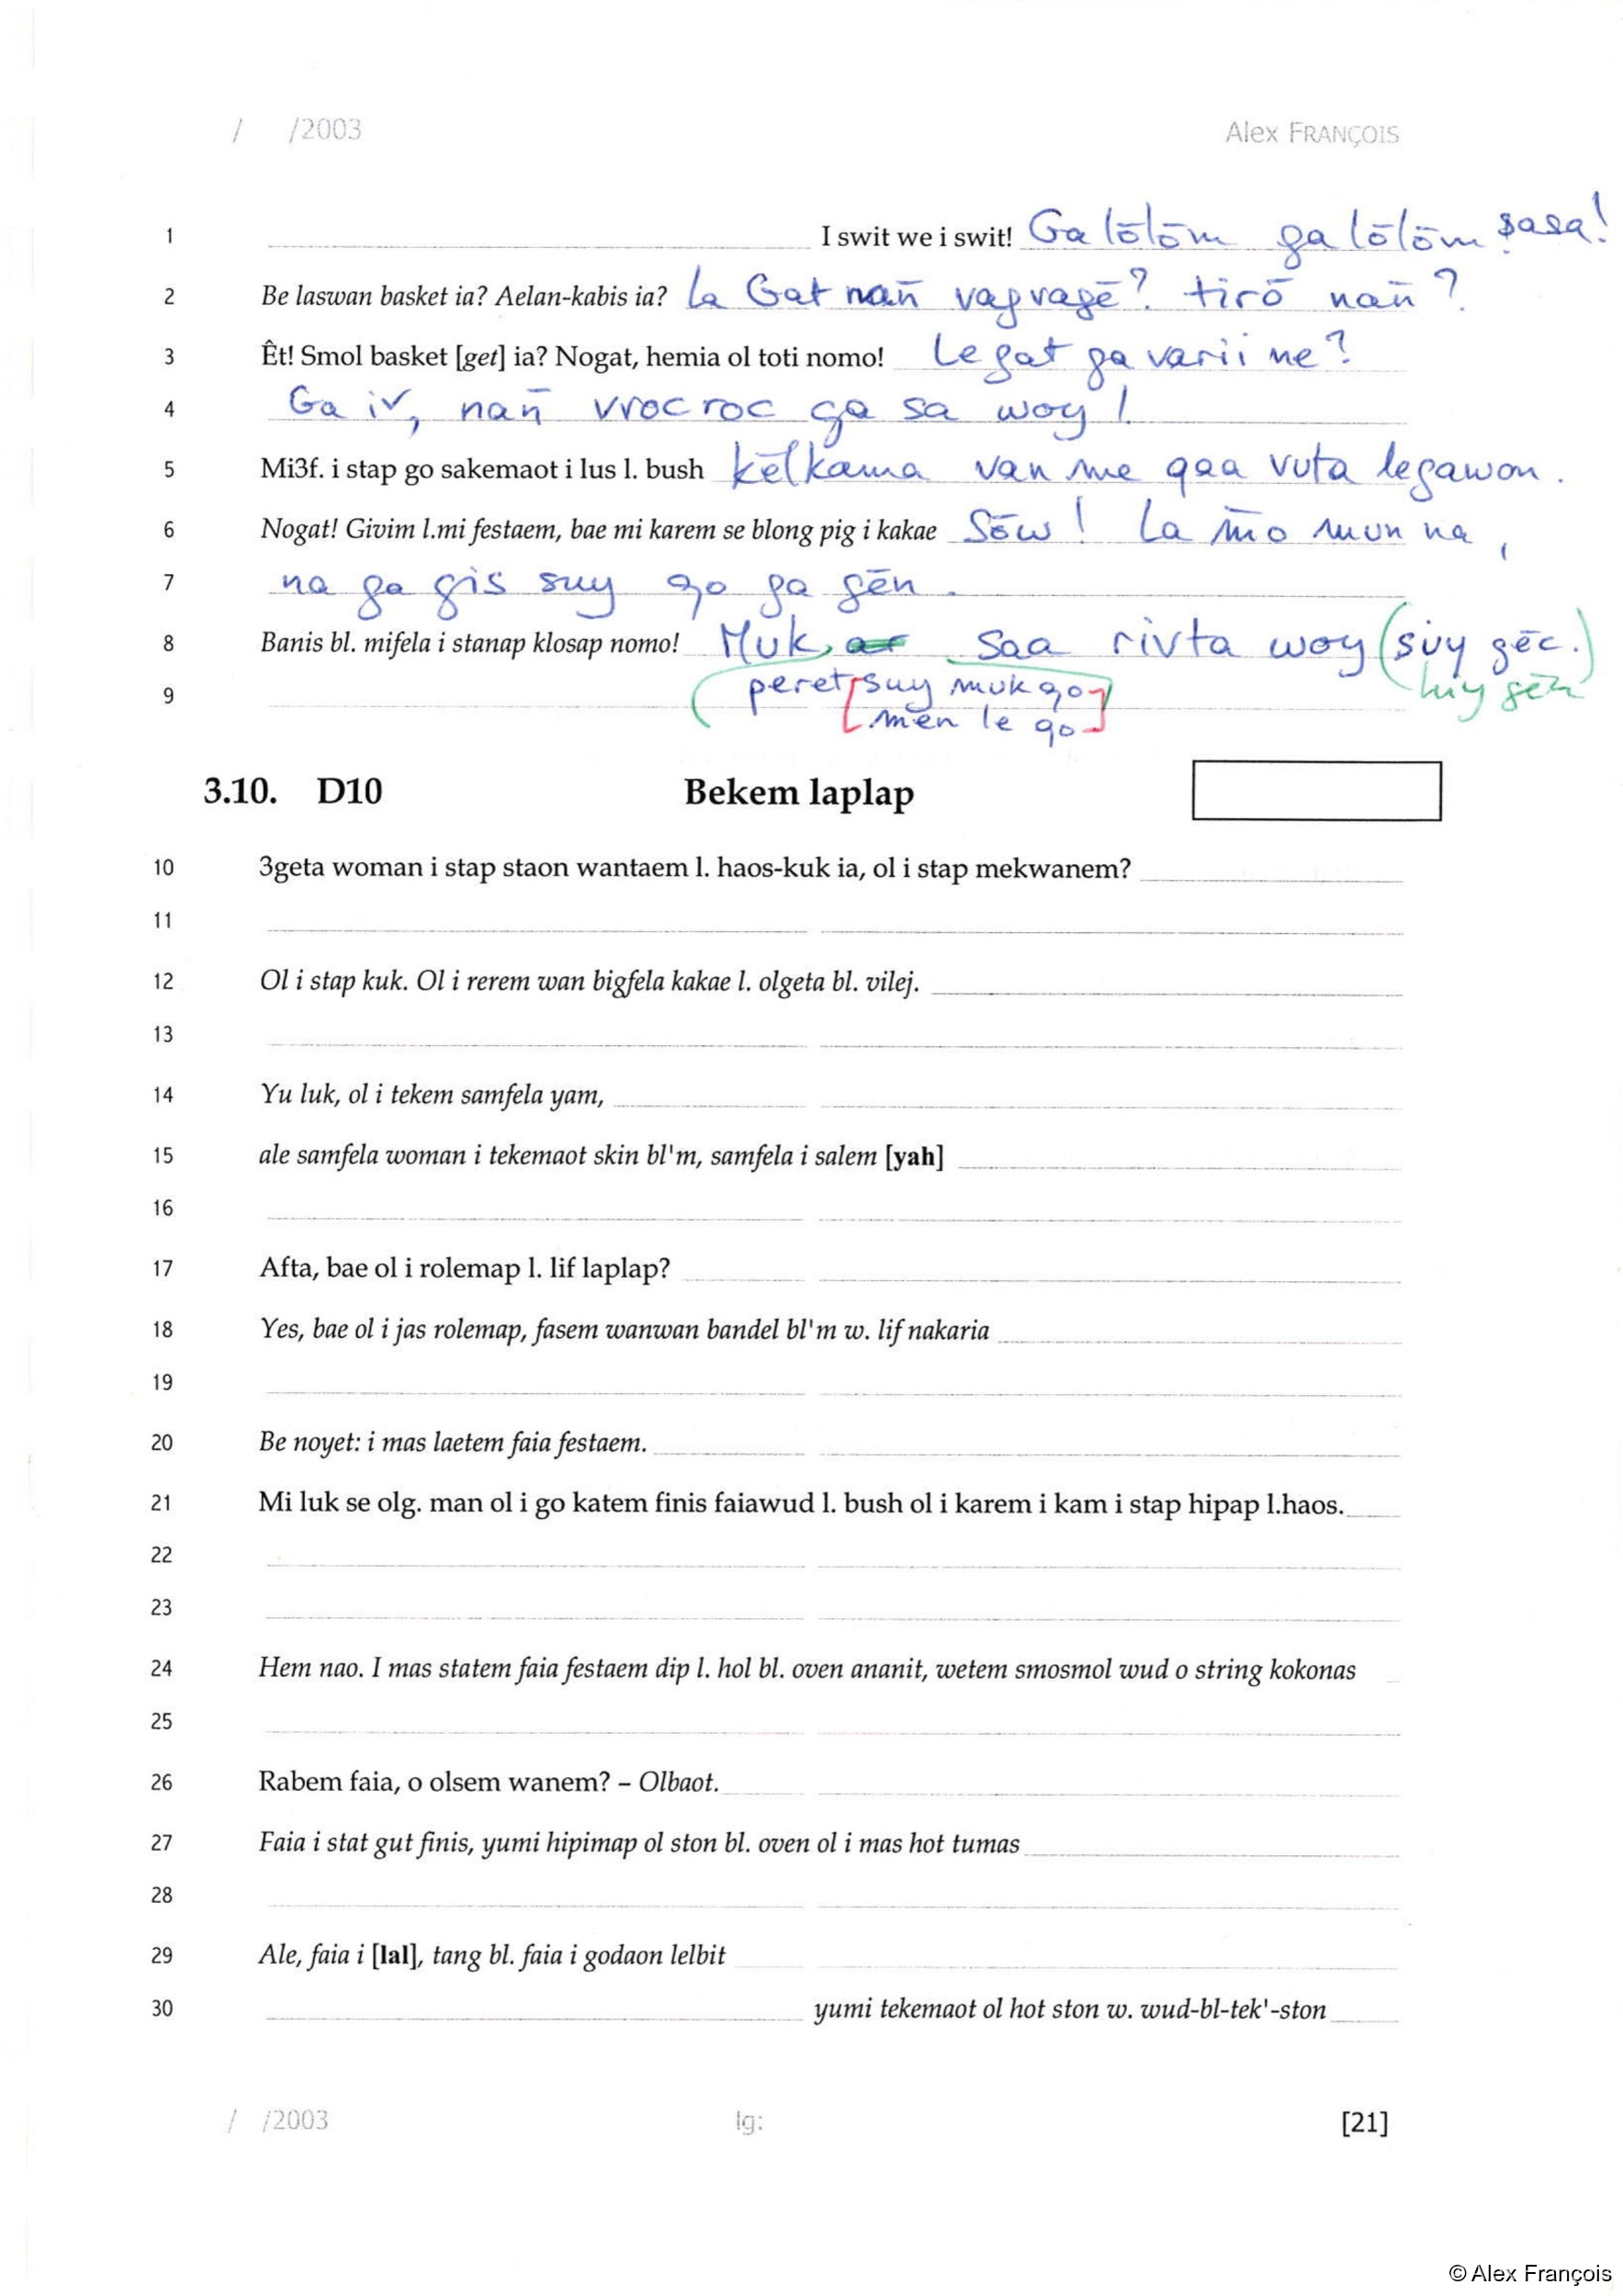 / /2003 Alex FRANÇOIS
1 I swit we i swit! Ga lōlōm ga lōlōm sasa!
2 Be laswan basket ia? Aelan-kabis ia? La Gat nan̄ vagvagē? tirō nan̄?
3 Êt! Smol basket [get] ia? Nogat, hemia ol toti nomo! Le gat ga varii me?
4 Ga iv, nan̄ vrocroc ga sa woy!
5 Mi3f. i stap go sakemaot i lus l. bush kēlkama van me qaa vuta legawon.
6 Nogat! Givim l.mi festaem, bae mi karem se blong pig i kakae Sōw! La m̄o mun na,
7 na ga gis suy qo ga gēn.
8 Banis bl. mifela i stanap klosap nomo! Muk, saa rivta woy (suy gēc.)
9 peret [suy muk qo] luy gēn
[mēn le qo]
3.10. D10 Bekem laplap
10 3geta woman i stap staon wantaem l. haos-kuk ia, ol i stap mekwanem?
11
12 Ol i stap kuk. Ol i rerem wan bigfela kakae l. olgeta bl. vilej.
13
14 Yu luk, ol i tekem samfela yam,
15 ale samfela woman i tekemaot skin bl'm, samfela i salem [yah]
16
17 Afta, bae ol i rolemap l. lif laplap?
18 Yes, bae ol i jas rolemap, fasem wanwan bandel bl'm w. lif nakaria
19
20 Be noyet: i mas laetem faia festaem.
21 Mi luk se olg. man ol i go katem finis faiawud l. bush ol i karem i kam i stap hipap l.haos.
22
23
24 Hem nao. I mas statem faia festaem dip l. hol bl. oven ananit, wetem smosmol wud o string kokonas
25
26 Rabem faia, o olsem wanem? – Olbaot.
27 Faia i stat gut finis, yumi hipimap ol ston bl. oven ol i mas hot tumas
28
29 Ale, faia i [lal], tang bl. faia i godaon lelbit
30 yumi tekemaot ol hot ston w. wud-bl-tek'-ston
/ /2003 lg: [21]
© Alex François